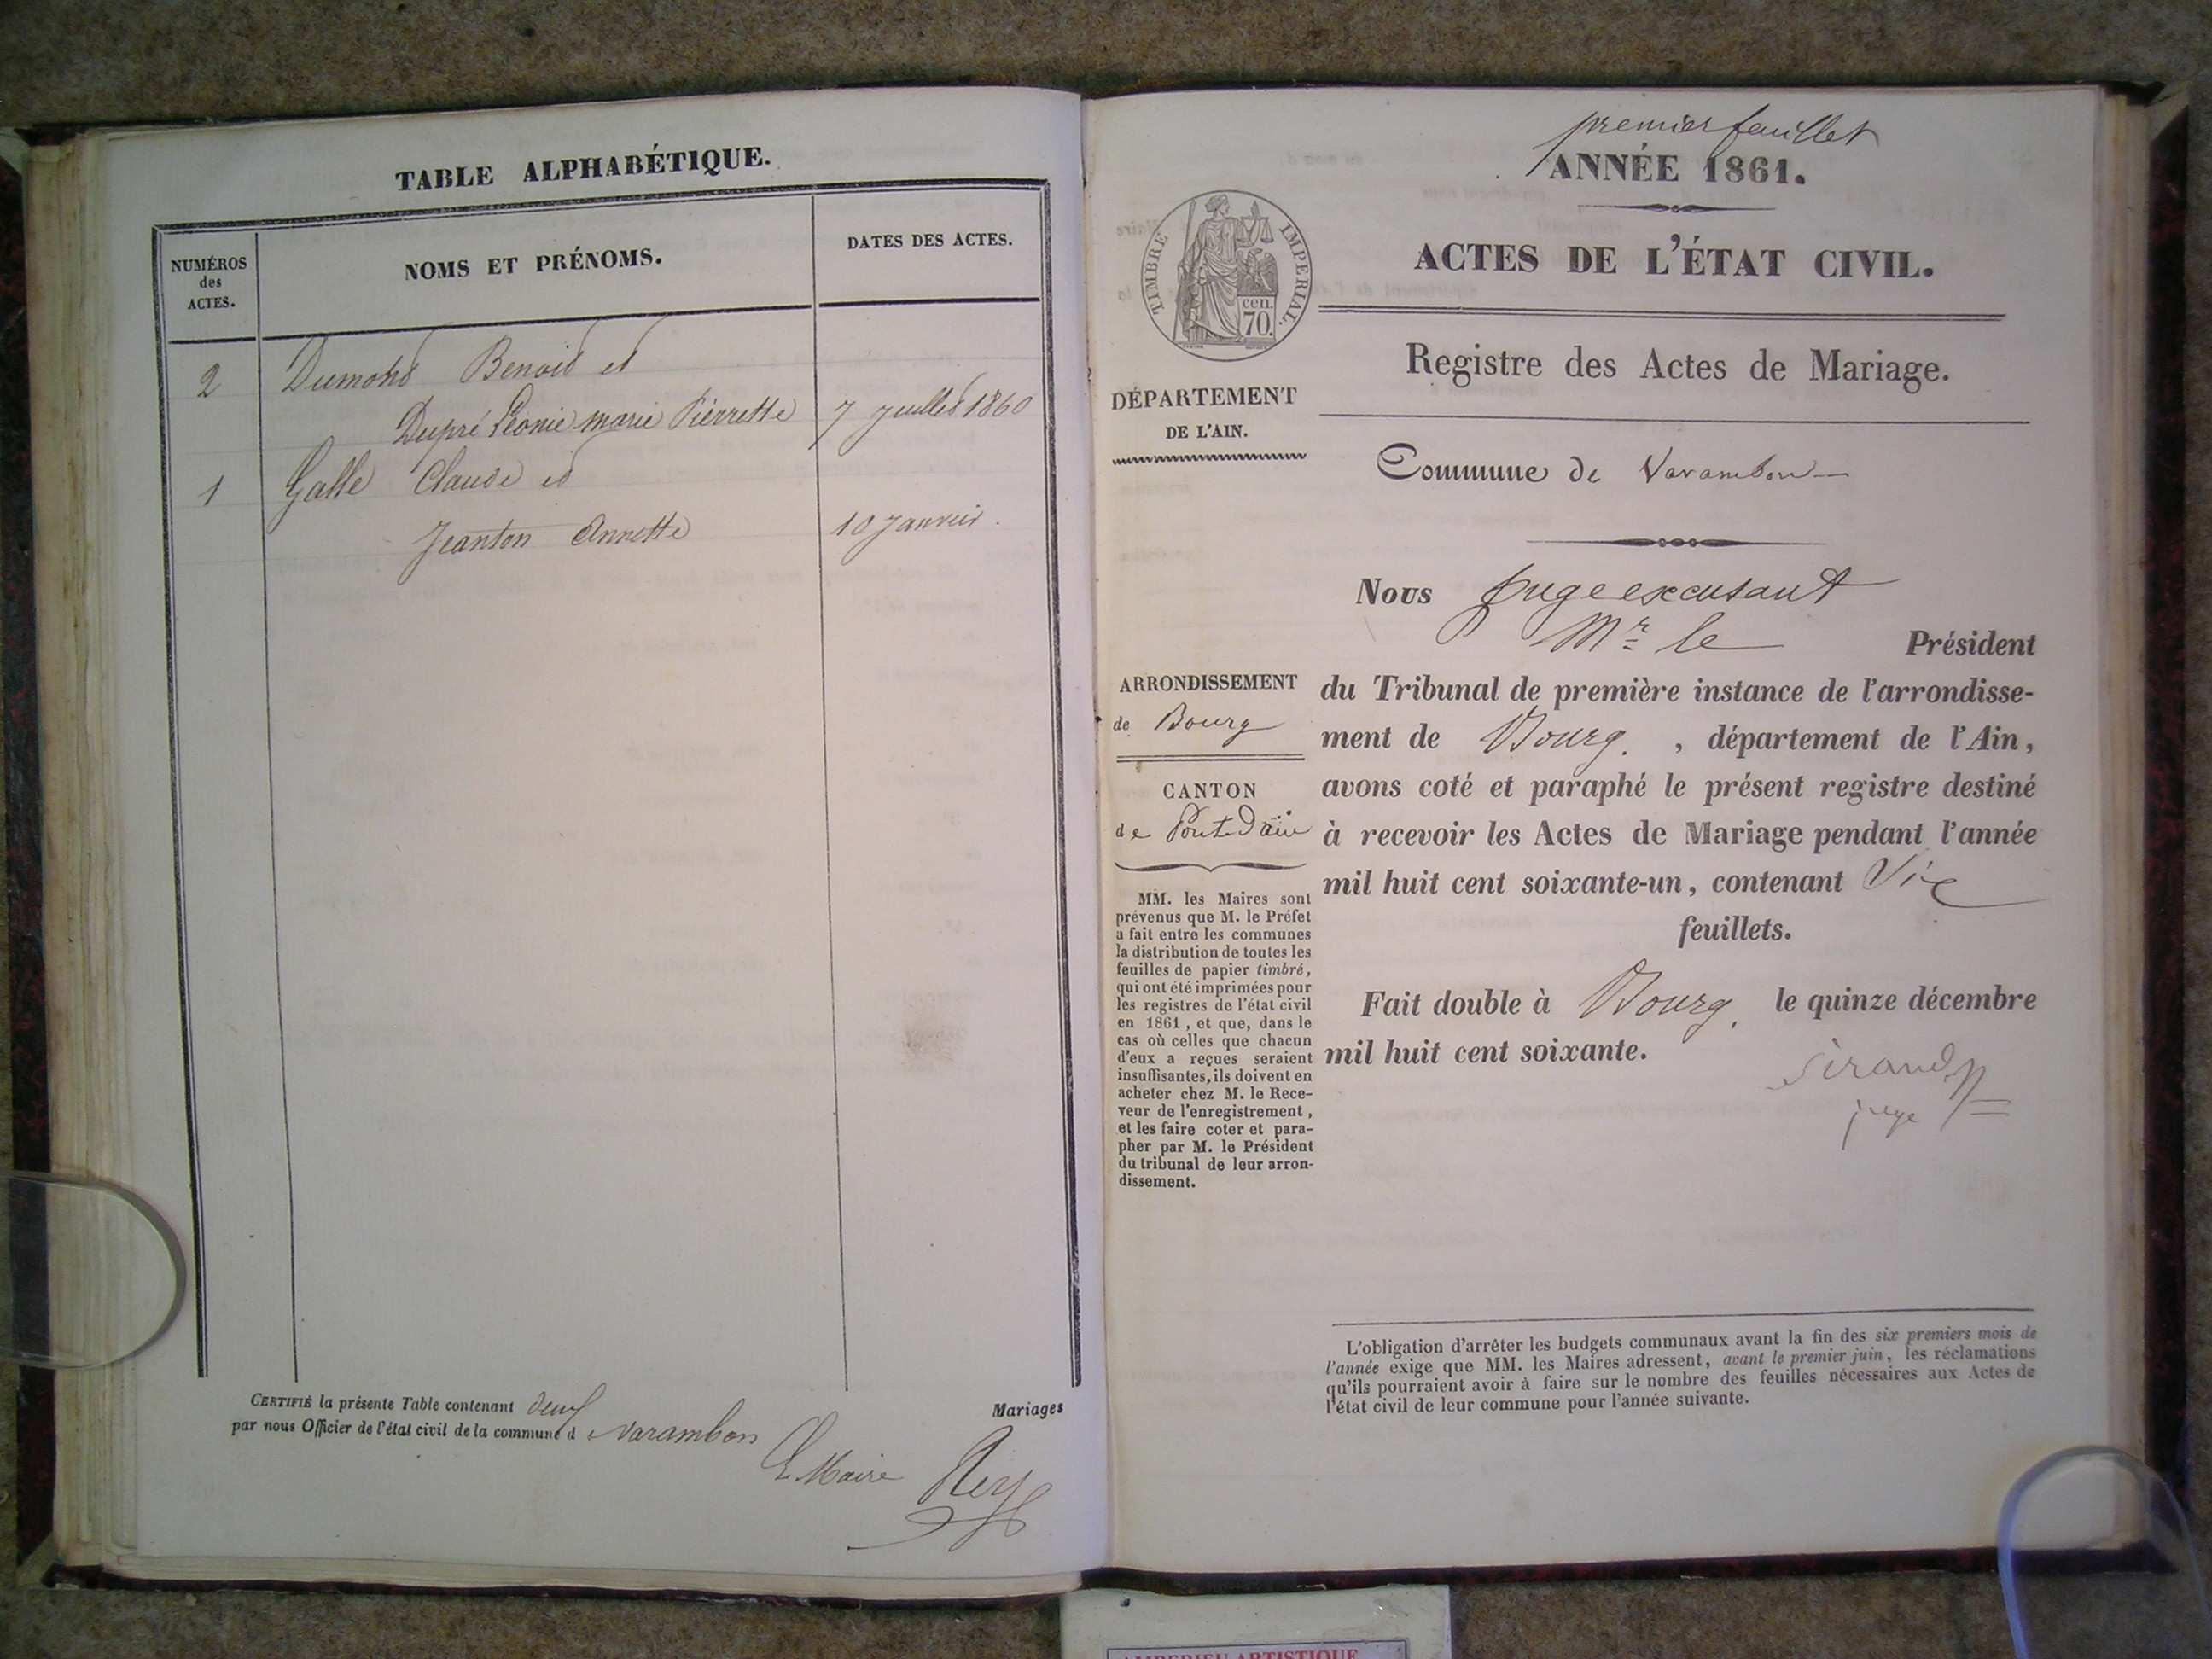 TABLE ALPHABÉTIQUE.
NUMÉROS
des
ACTES.
NOMS ET PRÉNOMS.
DATES DES ACTES.
2 Dumond Benoit et
Dupré Léonie marie Pierrette 7 juillet 1860
1 Galle Claude et
Jeanton Annette 10 Janvier.
CERTIFIÉ la présente Table contenant deux Mariages
par nous Officier de l'état civil de la commune de Varambon
Le Maire Rey
premier feuillet
ANNÉE 1861.
ACTES DE L'ÉTAT CIVIL.
TIMBRE IMPERIAL.
cen.
70.
Registre des Actes de Mariage.
DÉPARTEMENT
DE L'AIN.
Commune de Varambon
Nous juge excusant
Mr le Président
ARRONDISSEMENT
de Bourg
CANTON
de Pont-Dain
MM. les Maires sont
prévenus que M. le Préfet
a fait entre les communes
la distribution de toutes les
feuilles de papier timbré,
qui ont été imprimées pour
les registres de l'état civil
en 1861, et que, dans le
cas où celles que chacun
d'eux a reçues seraient
insuffisantes, ils doivent en
acheter chez M. le Rece-
veur de l'enregistrement,
et les faire coter et para-
pher par M. le Président
du tribunal de leur arron-
dissement.
du Tribunal de première instance de l'arrondisse-
ment de Bourg. , département de l'Ain,
avons coté et paraphé le présent registre destiné
à recevoir les Actes de Mariage pendant l'année
mil huit cent soixante-un, contenant Six
feuillets.
Fait double à Bourg, le quinze décembre
mil huit cent soixante.
Sirand
juge
L'obligation d'arrêter les budgets communaux avant la fin des six premiers mois de
l'année exige que MM. les Maires adressent, avant le premier juin, les réclamations
qu'ils pourraient avoir à faire sur le nombre des feuilles nécessaires aux Actes de
l'état civil de leur commune pour l'année suivante.
AMBERIEU ARTISTIQUE